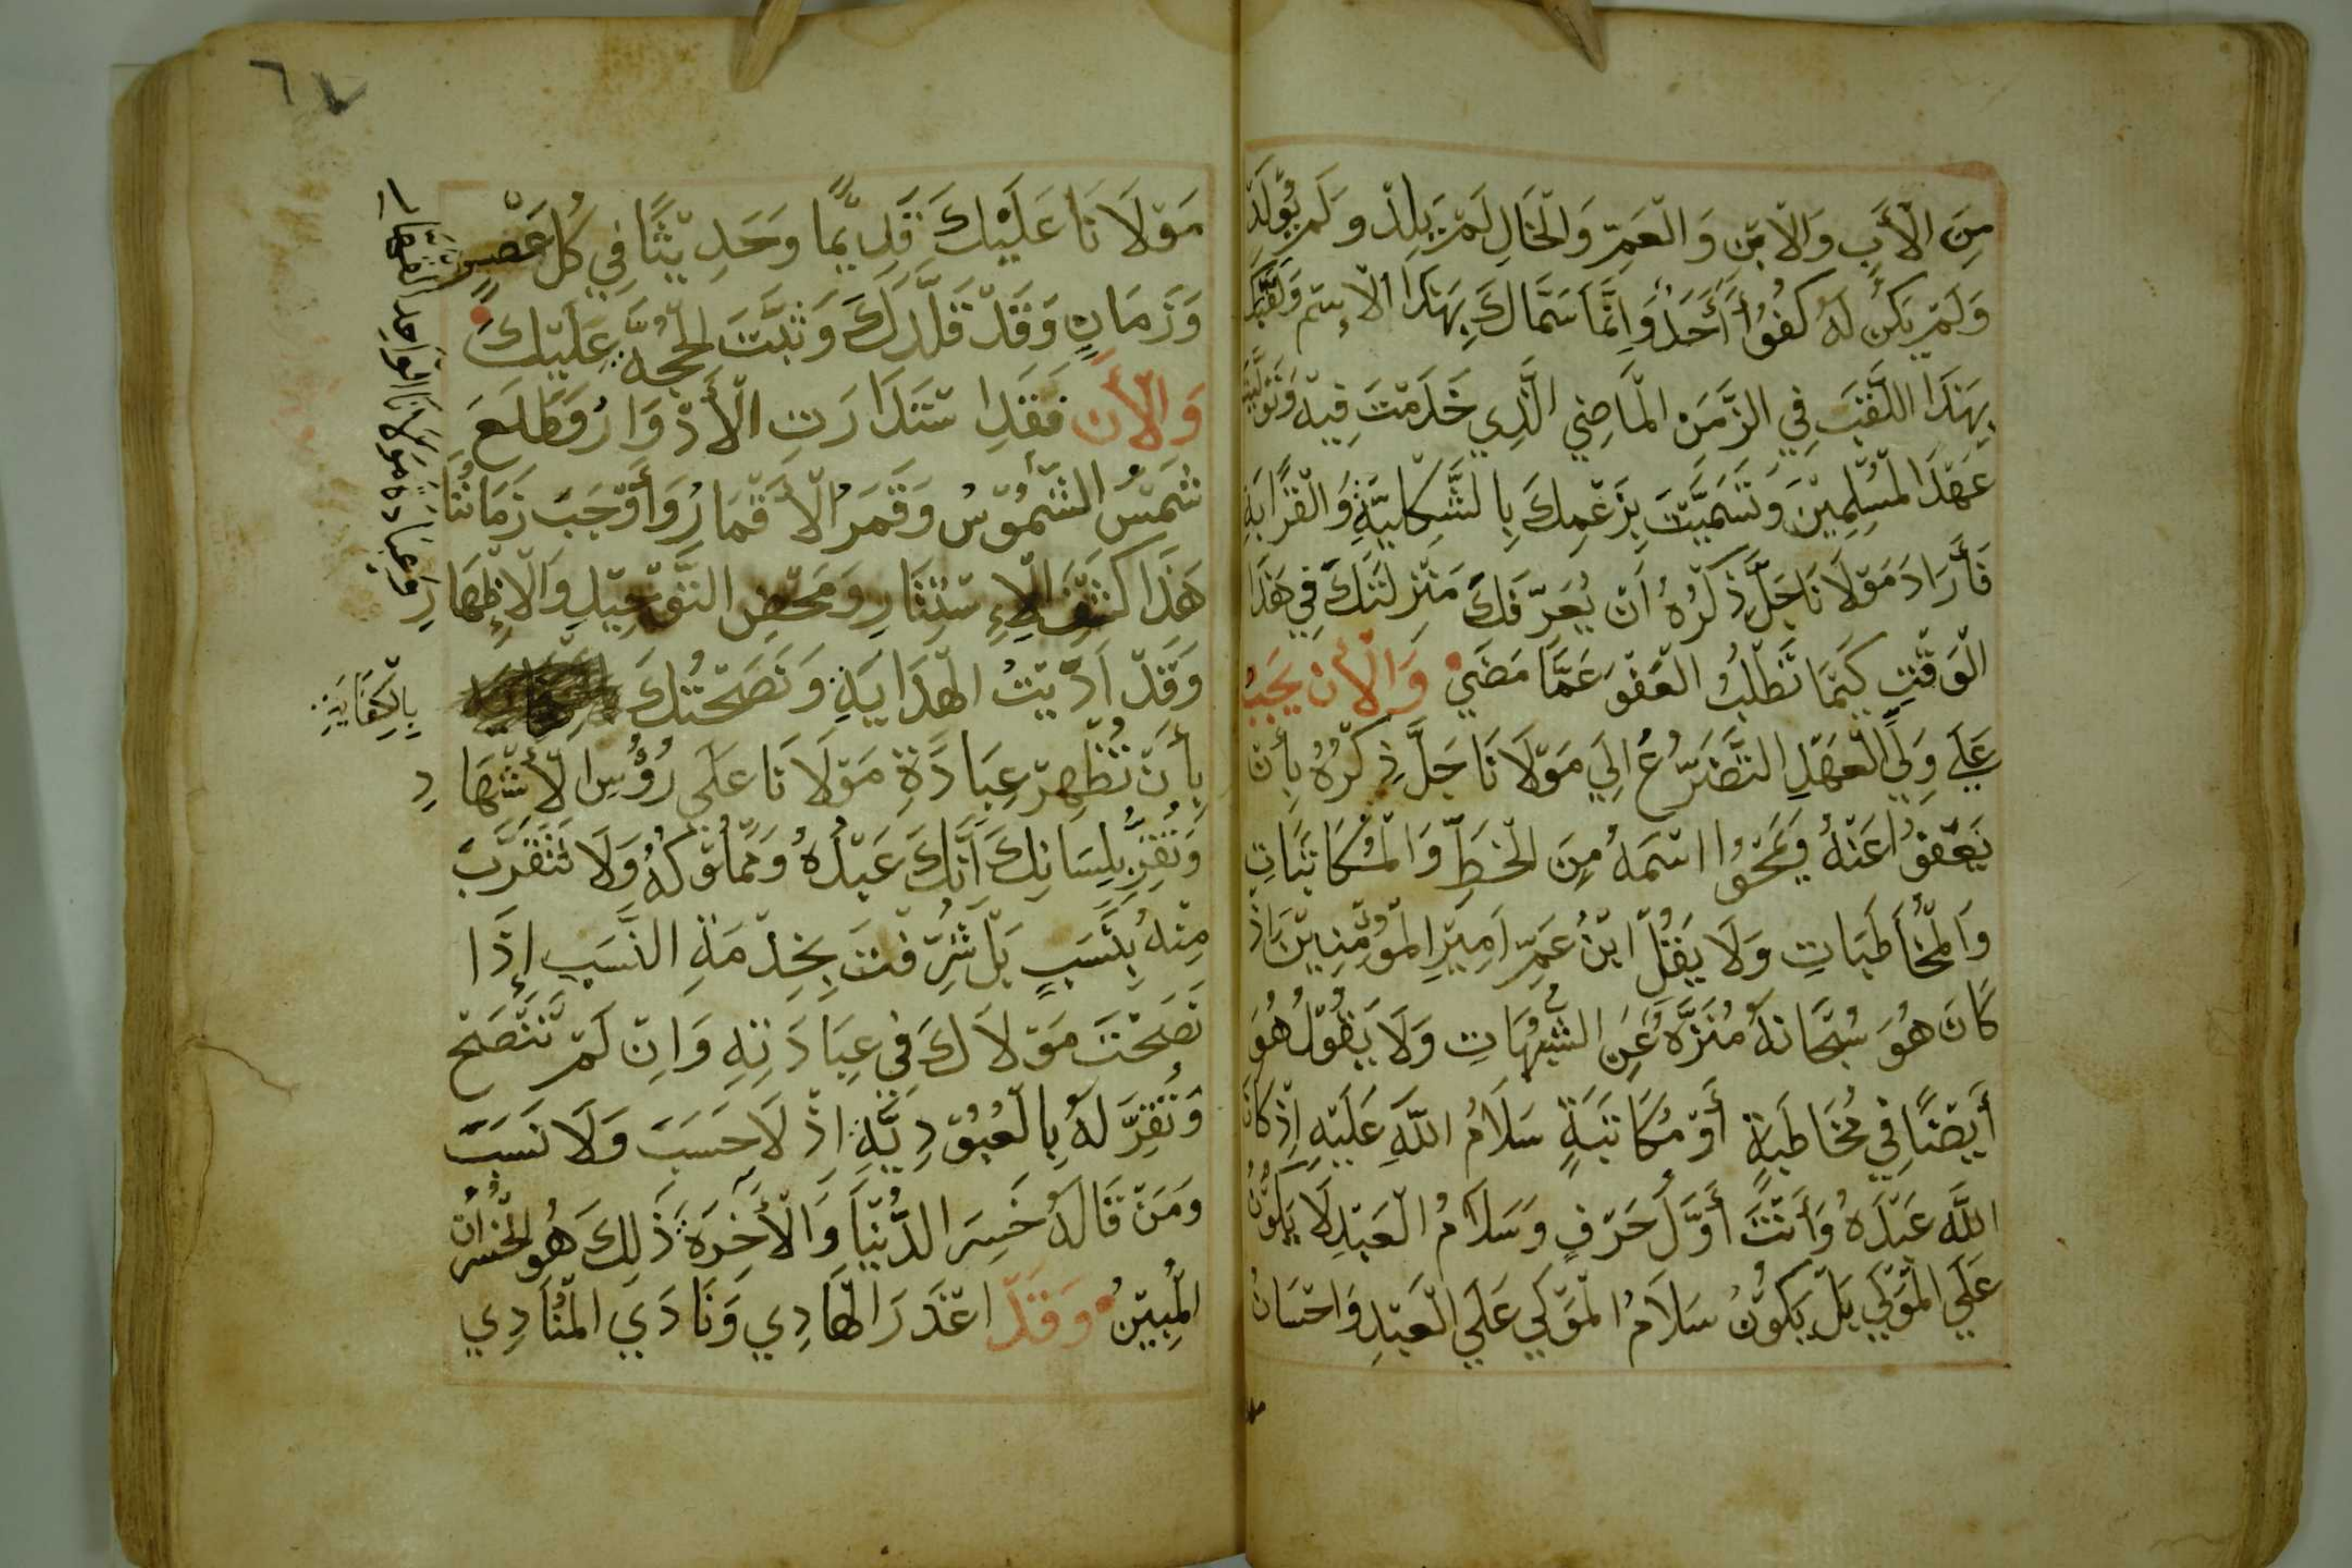 مِنَ الْأَبِ وَالْابْنِ وَالْعَمِّ وَالْخَالِ لَمْ يَلِدْ وَلَمْ يُولَدْ
وَلَمْ يَكُنْ لَهُ كُفُوًا أَحَدٌ وَإِنَّمَا سَمَّاكَ بِهَذَا الْإِسْمِ وَلَقَّبَكَ
بِهَذَا اللَّقَبِ فِي الزَّمَنِ الْمَاضِي الَّذِي خَدَمْتَ فِيهِ وَتَوَلَّيْتَ
عَهْدَ الْمُسْلِمِيْنَ وَتَسَمَّيْتَ بِزَعْمِكَ بِالشَّكْلِيَّةِ وَالْقَرَابَةِ
فَأَرَادَ مَوْلَانَا جَلَّ ذِكْرُهُ أَنْ يُعَرِّفَكَ مَنْزِلَتَكَ فِي هَذَا
الْوَقْتِ كَيْمَا تَطْلُبُ الْعَفْوَ عَمَّا مَضَي وَالْأَنَ يَجِبُ
عَلَي وَلِيِّ الْعَهْدِ التَّضَرُّعُ اِلَي مَوْلَانَا جَلَّ ذِكْرُهُ بِأَنْ
يَعْفُوا عَنْهُ وَيَمْحُوا اسْمَهُ مِنَ الْخَطِّ وَالْمُكَاتَبَاتِ
وَالْمُخَاطَبَاتِ وَلَا يَقُلْ ابْنُ عَمِّ اَمِيْرِ الْمُؤْمِنِيْنَ اِذْ
كَانَ هُوَ سُبْحَانَهُ مُنَزَّهٌ عَنِ الشُّبُهَاتِ وَلَا يَقُوْلُ هُوَ
أَيْضًا فِي مُخَاطَبَةٍ أَوْ مُكَاتَبَةٍ سَلَامُ اللَّهِ عَلَيْهِ اِذْ كَانَ
اللَّه عَبْدَهُ وَأَنْتَ أَوَّلَ حَرْفٍ وَسَلَامُ الْعَبْدِ لَا يَكُوْنُ
عَلَي الْمَوْلَي بَلْ يَكُوْنُ سَلَامُ الْمَوْلَي عَلَي الْعَبْدِ وَاحْسَانُ
٦٧
مَوْلَانَا عَلَيْكَ قَدِيْمًا وَحَدِيْثًا فِي كُلِّ عَصْرٍ
وَزَمَانٍ وَقَدْ قَلَّدَكَ وَثَبَّتَ الْحُجَّةَ عَلَيْكَ
وَالْأَنَ فَقَدِ اسْتَدَارَتِ الْأَدْوَارُ وَطَلَعَ
شَمْسُ الشُّمُوْسُ وَقَمَرُ الْأَقْمَارُ وَأَوْجَبَ زَمَانُنَا
هَذَا كَشْفَ الْإِسْتِتَارِ وَمَحْضِ التَّوْحِيْدِ وَالْإِظْهَارِ
وَعِبَادَهْ مَوْلَانَا الْوَاحِدِ الْقَهَّارِ
وَقَدْ اَدَّيْتُ الْهِدَايَةِ وَنَصَحْتُكَ
بِالْكِفَايَةِ
بِأَنْ تُظْهِرْ عِبَادَةِ مَوْلَانَا عَلَي رُؤُسِ الْأَشْهَادِ
وَتُقِرُّ بِلِسَانِكَ أَنَّكَ عَبْدُهُ وَمَمْلُوْكُهُ وَلَا تَتَقَرَّبَ
مِنْهُ بِنَسَبٍ بَلْ شُرِّفْتَ بِخِدْمَةِ النَّسَبِ إِذَا
نَصَحْتَ مَوْلَاكَ فِي عِبَادَتِهِ وَاِنْ لَمْ تَنْتَصَحْ
وَتُقِرَّ لَهُ بِالْعُبُوْدِيَّةِ اِذْ لَا حَسَبَ وَلَا نَسَبَ
وَمَنْ قَالَهُ خَسِرَ الدُّنْيَا وَالْأَخِرَةَ ذَلِكَ هُوَ الْخُسْرَانُ
الْمُبِيْنُ وَقَدْ اعْذَرَ الْهَادِي وَنَادَي الْمُنَادِي